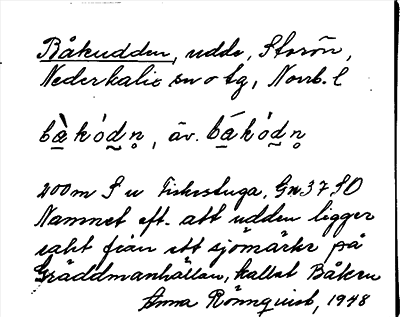 Båkudden, udde, Storön,
Nederkalix sn o tg, Norrb. l
bàkódn̥, äv. bákódn̥
200 m S u Fiskestuga, Gn 37 SO
Namnet eft. att udden ligger
rakt från ett sjömärke på
Gräddmanhällan, kallat Båken
Anna Rönnquist, 1948